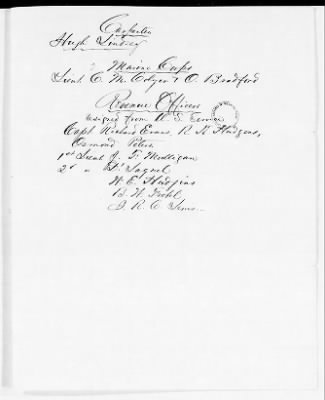 Carpenter
Hugh Lindsey
Marine Corps
Lieut. C. M. Colyer & O. Bradford
Revenue Officers
resigned from U. S. Service
Capt Richard Evans, R. K. Hudgins,
Osmond Peters
1st Lieut J. F. Milligan
2d " 
W. E. Hudgins
B. W.
J. R. C.